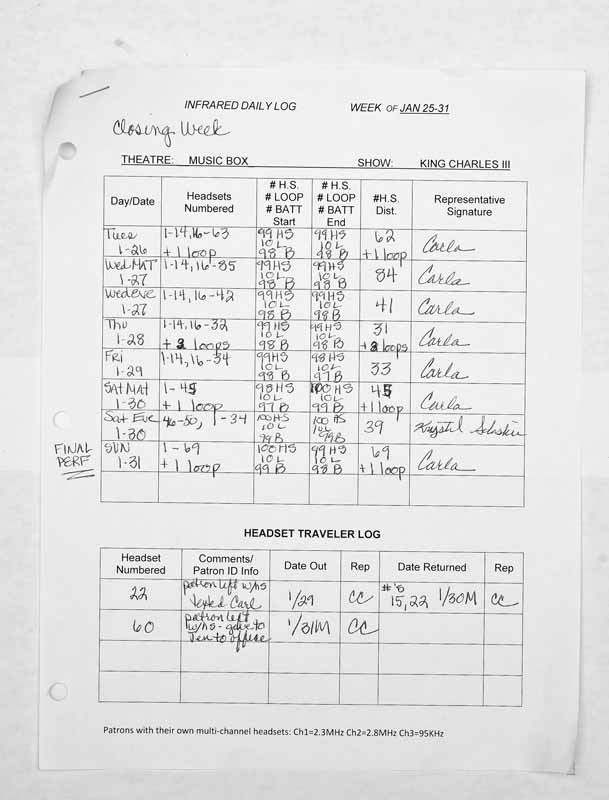 INFRARED DAILY LOG WEEK OF JAN 25-31
Closing Week
THEATRE: MUSIC BOX SHOW: KING CHARLES III
Day/Date Headsets Numbered # H.S. # LOOP # BATT Start # H.S. # LOOP # BATT End #H.S. Dist. Representative Signature
Tues 1-26 1-14,16-63 +1 loop 99HS 10L 98B 99HS 10L 98B 62 +1 loop Carla
Wed MAT 1-27 1-14,16-85 99HS 10L 98B 99HS 10L 98B 84 Carla
Wed eve 1-27 1-14,16-42 99HS 10L 98B 99HS 10L 98B 41 Carla
Thu 1-28 1-14,16-32 + loops 99HS 10L 98B 99HS 10L 98B 31 + loops Carla
FRI 1-29 1-14,16-34 99HS 10L 98B 98HS 10L 97B 33 Carla
SAT MAT 1-30 1-45 +1 loop 98HS 10L 97B 100HS 10L 99B 45 +1 loop Carla
Sat Eve 1-30 46-50, 1-34 100HS 10L 99B 100HS 10L 99B 39 Krystil
FINAL PERF
SUN 1-31 1-69 +1 loop 100HS 10L 99B 99HS 10L 98B 69 +1 loop Carla
HEADSET TRAVELER LOG
Headset Numbered Comments/ Patron ID Info Date Out Rep Date Returned Rep
22 patron left w/hs Texted Carl 1/29 CC #'s 15,22 1/30M CC
60 patron left w/hs - gave to Jen to office 1/31M CC
Patrons with their own multi-channel headsets: Ch1=2.3MHz Ch2=2.8MHz Ch3=95KHz